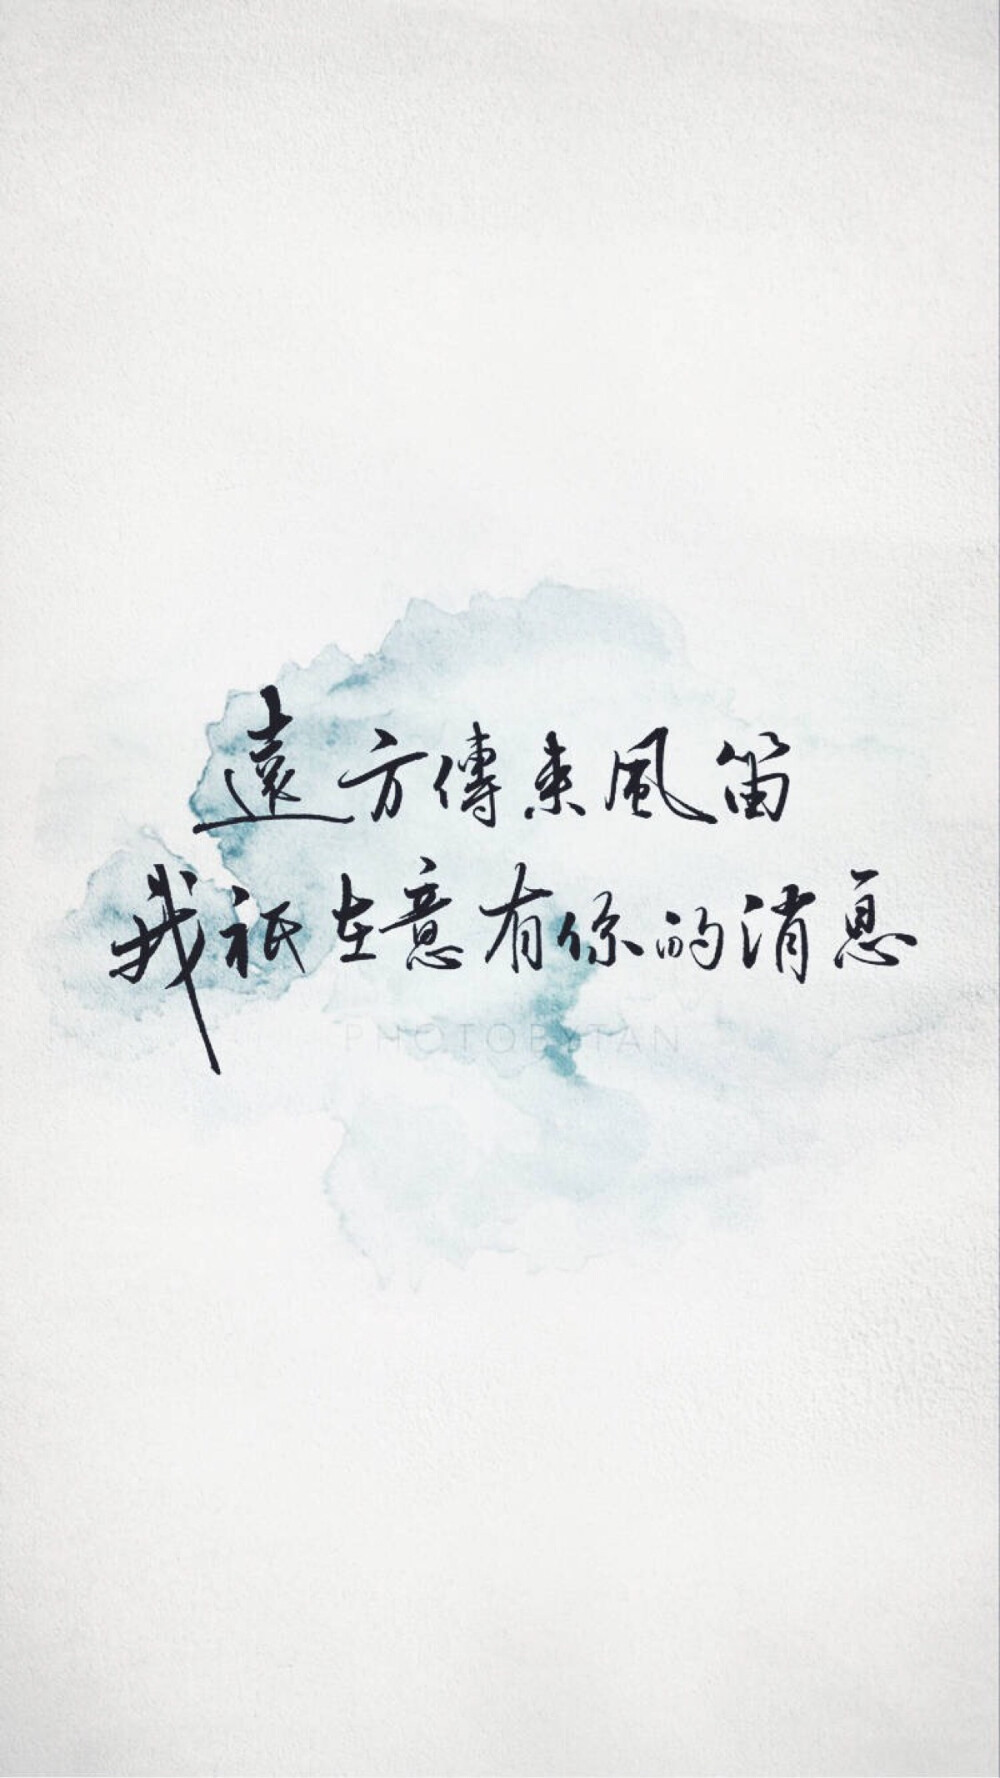 遠方傳来風笛
我祇在意有你的消息
PHOTOBYTAN